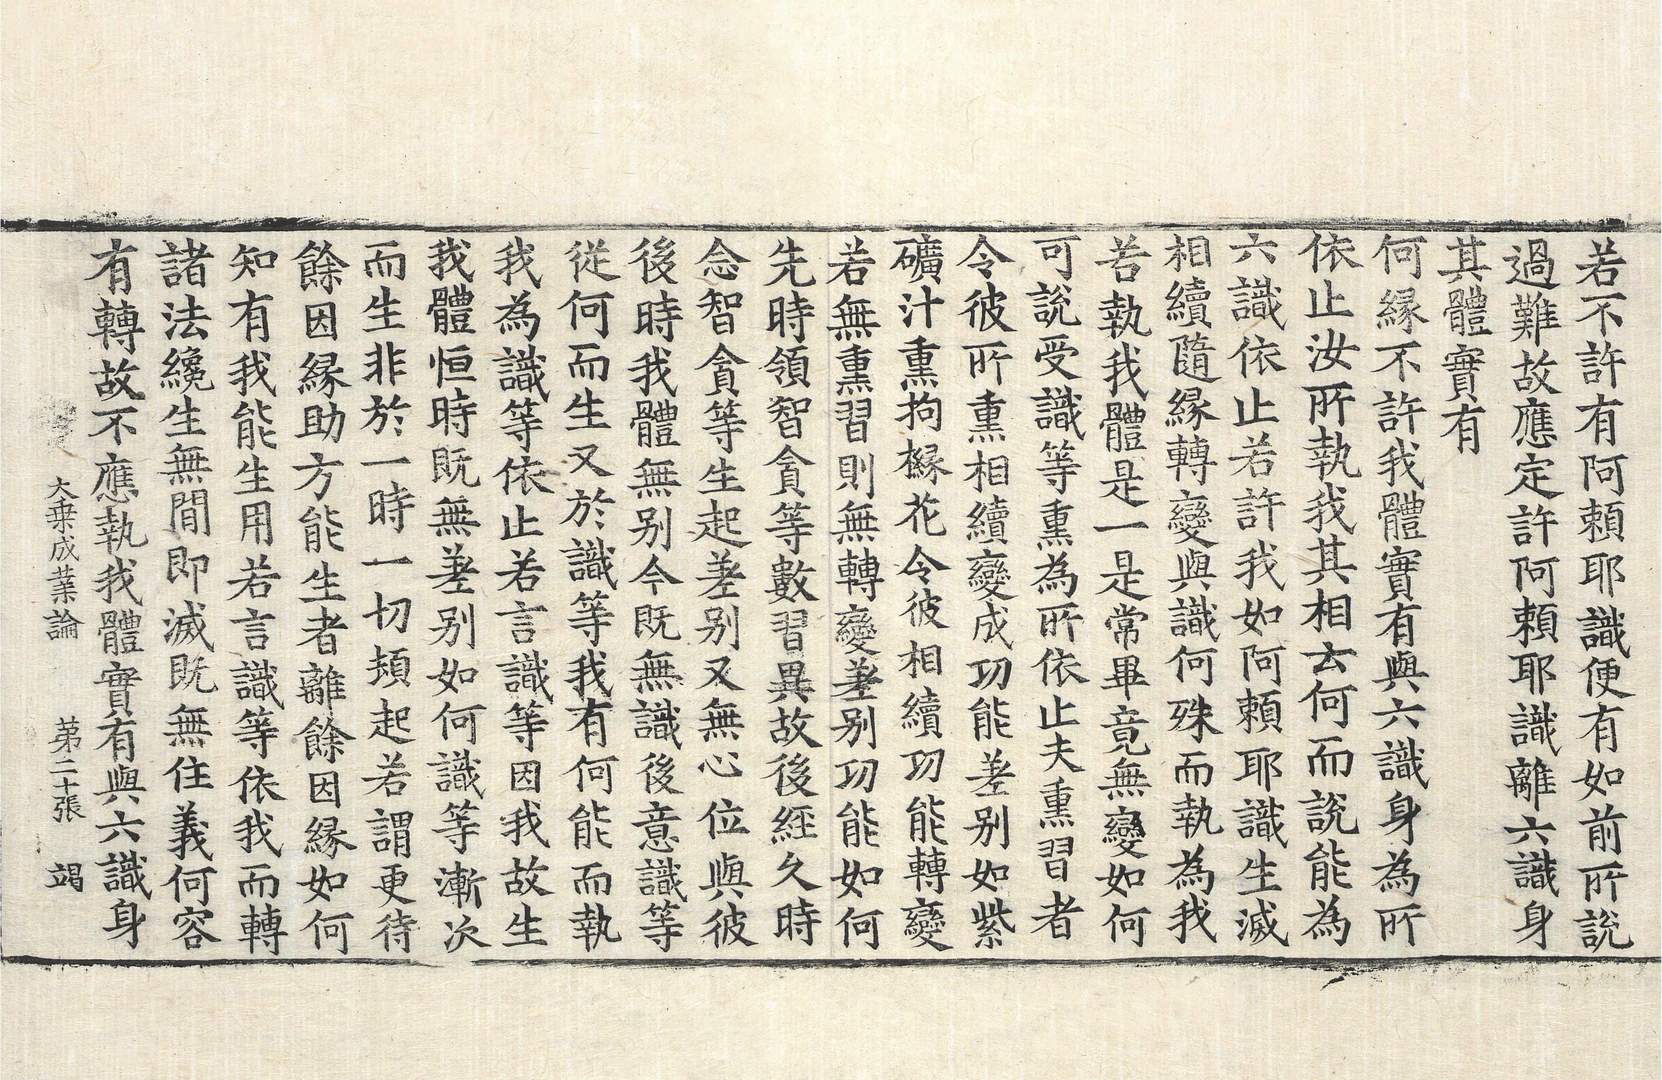 若不許有阿頼耶識便有如前所說
過難故應定許阿頼耶識離六識身
其體實有
何緣不許我體實有與六識身為所
依止汝所執我其相云何而說能為
六識依止若許我如阿頼耶識生滅
相續隨緣轉變與識何殊而執為我
若執我體是一是常畢竟無變如何
可說受識等熏為所依止夫熏習者
令彼所熏相續變成功能差别如紫
礦汁熏拘櫞花令彼相續功能轉變
若無熏習則無轉變差别功能如何
先時領智貪等數習異故後經久時
念智貪等生起差别又無心位與彼
後時我體無别今既無識後意識等
從何而生又於識等我有何能而執
我為識等依止若言識等因我故生
我體恒時既無差别如何識等漸次
而生非於一時一切頓起若謂更待
餘因緣助方能生者離餘因緣如何
知有我能生用若言識等依我而轉
諸法纔生無間即滅既無住義何容
有轉故不應執我體實有與六識身
大乗成業論 苐二十張 竭